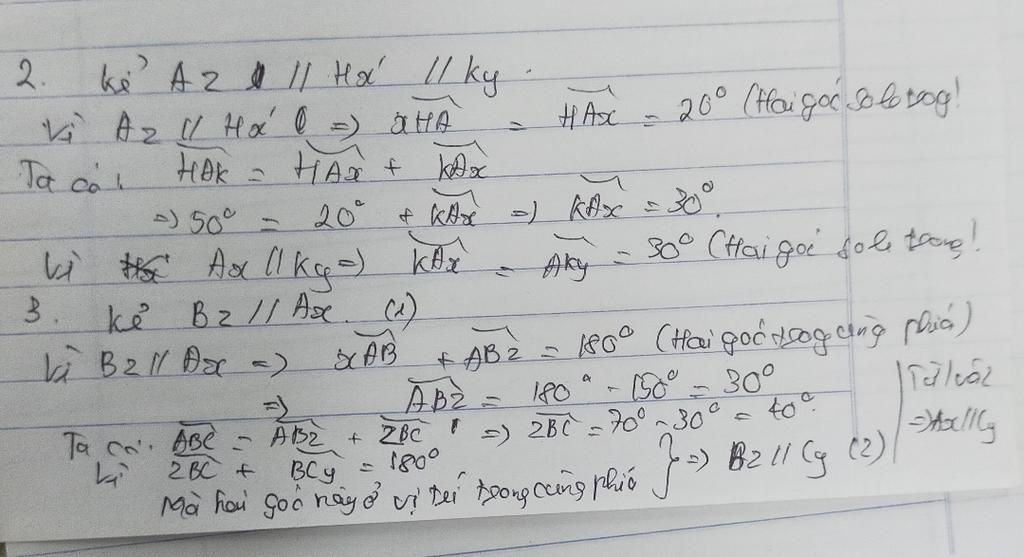 2. Kẻ Az // Hx // Ky.
Vì Az // Hx => xHA = HAx = 20° (Hai góc so le trog!
Ta có: HAK = HAx + KAx
=> 50° = 20° + KAx => KAx = 30°.
Vì Ax // Ky => KAx = AKy = 30° (Hai góc so le trong!
3. Kẻ Bz // Ax. (1)
Vì Bz // Ax => xAB + ABz = 180° (Hai góc trog cùng phía)
=> ABz = 180° - 150° = 30°
Ta có: ABC = ABz + zBC => zBC = 70° - 30° = 40°.
Vì zBC + BCy = 180°
Mà hai góc này ở vị trí trong cùng phía } => Bz // Cy (2)
Từ 1 và 2
=> Ax // Cy